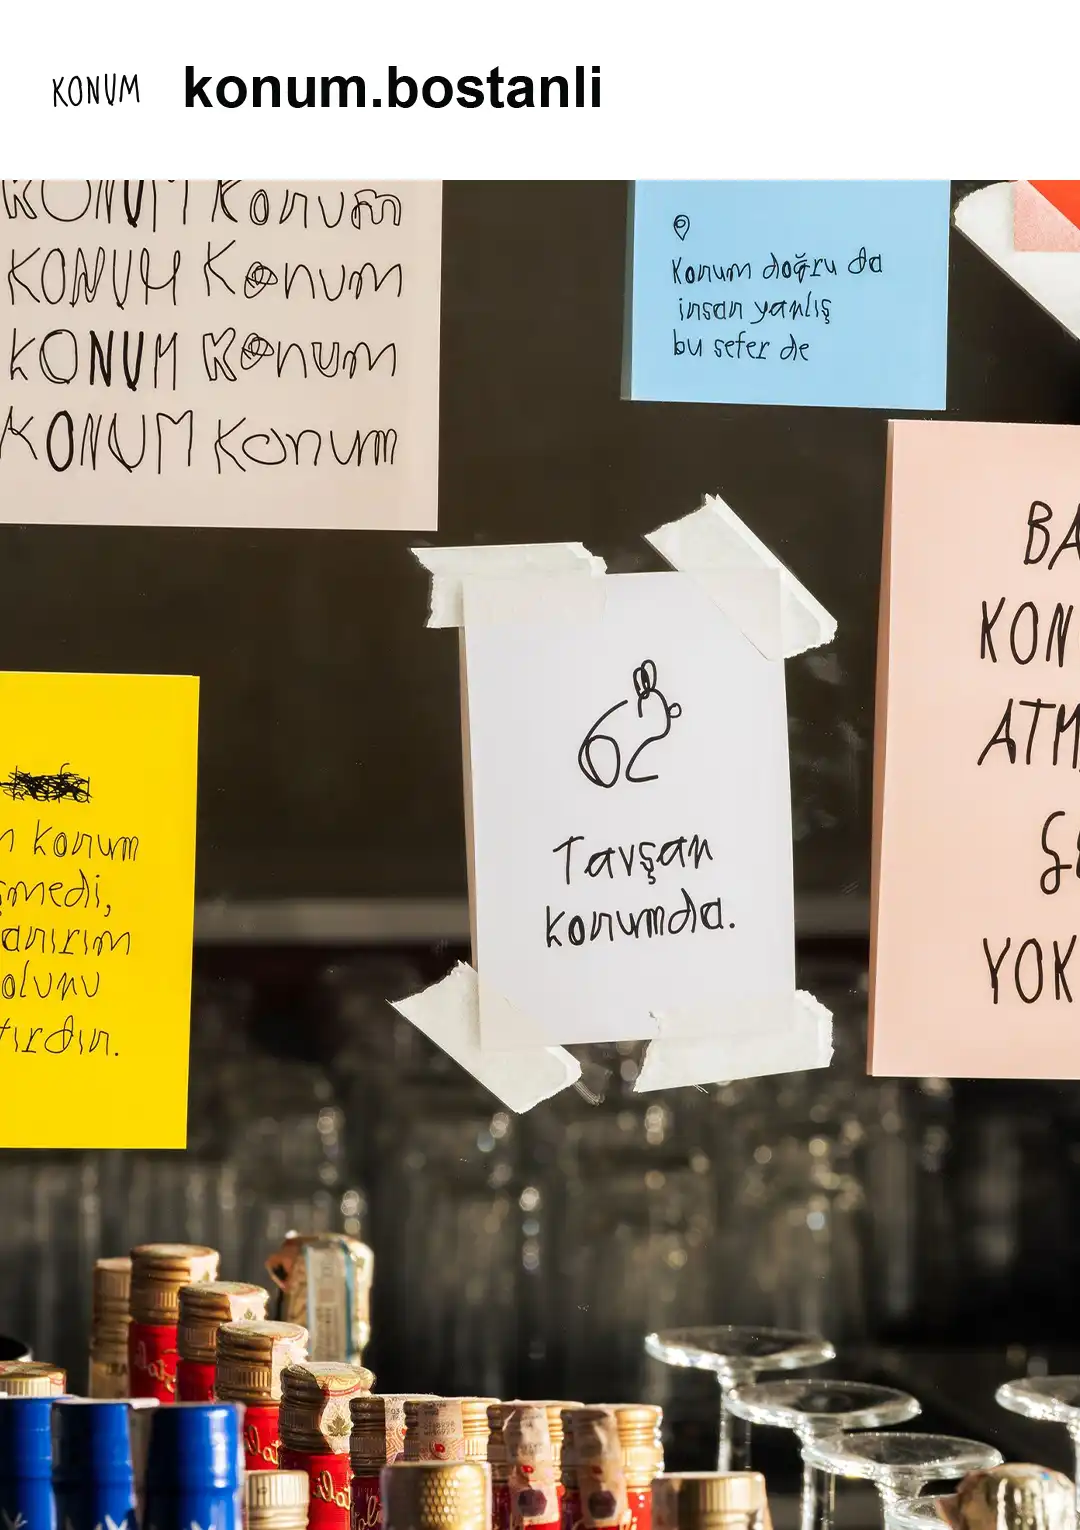 KONUM konum.bostanli
KONUM Konum
KONUM Konum
KONUM Konum
KONUM Konum
Konum doğru da
insan yanlış
bu sefer de
BA
KON
ATM
YOK
Tavşan
konumda.
konum
şmedi,
anırım
olunu
tırdın.